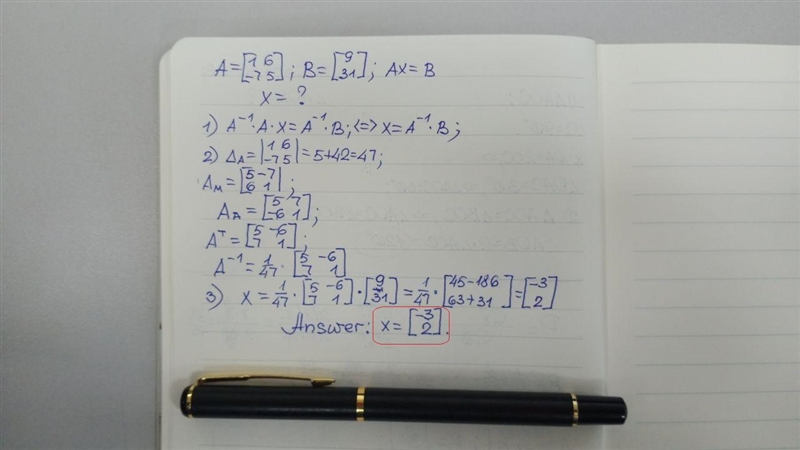 A = [1 6; -7 5]; B = [9; 31]; AX = B
X = ?
1) A⁻¹·A·X = A⁻¹·B; <=> X = A⁻¹·B;
2) Δ_A = |1 6; -7 5| = 5+42=47;
A_M = |5 -7; 6 1|;
A_A = [5 7; -6 1];
Aᵀ = [5 -6; 7 1];
A⁻¹ = 1/47 · [5 -6; 7 1]
3) X = 1/47 · [5 -6; 7 1] · [9; 31] = 1/47 · [45-186; 63+31] = [-3; 2]
Answer: x = [-3; 2].